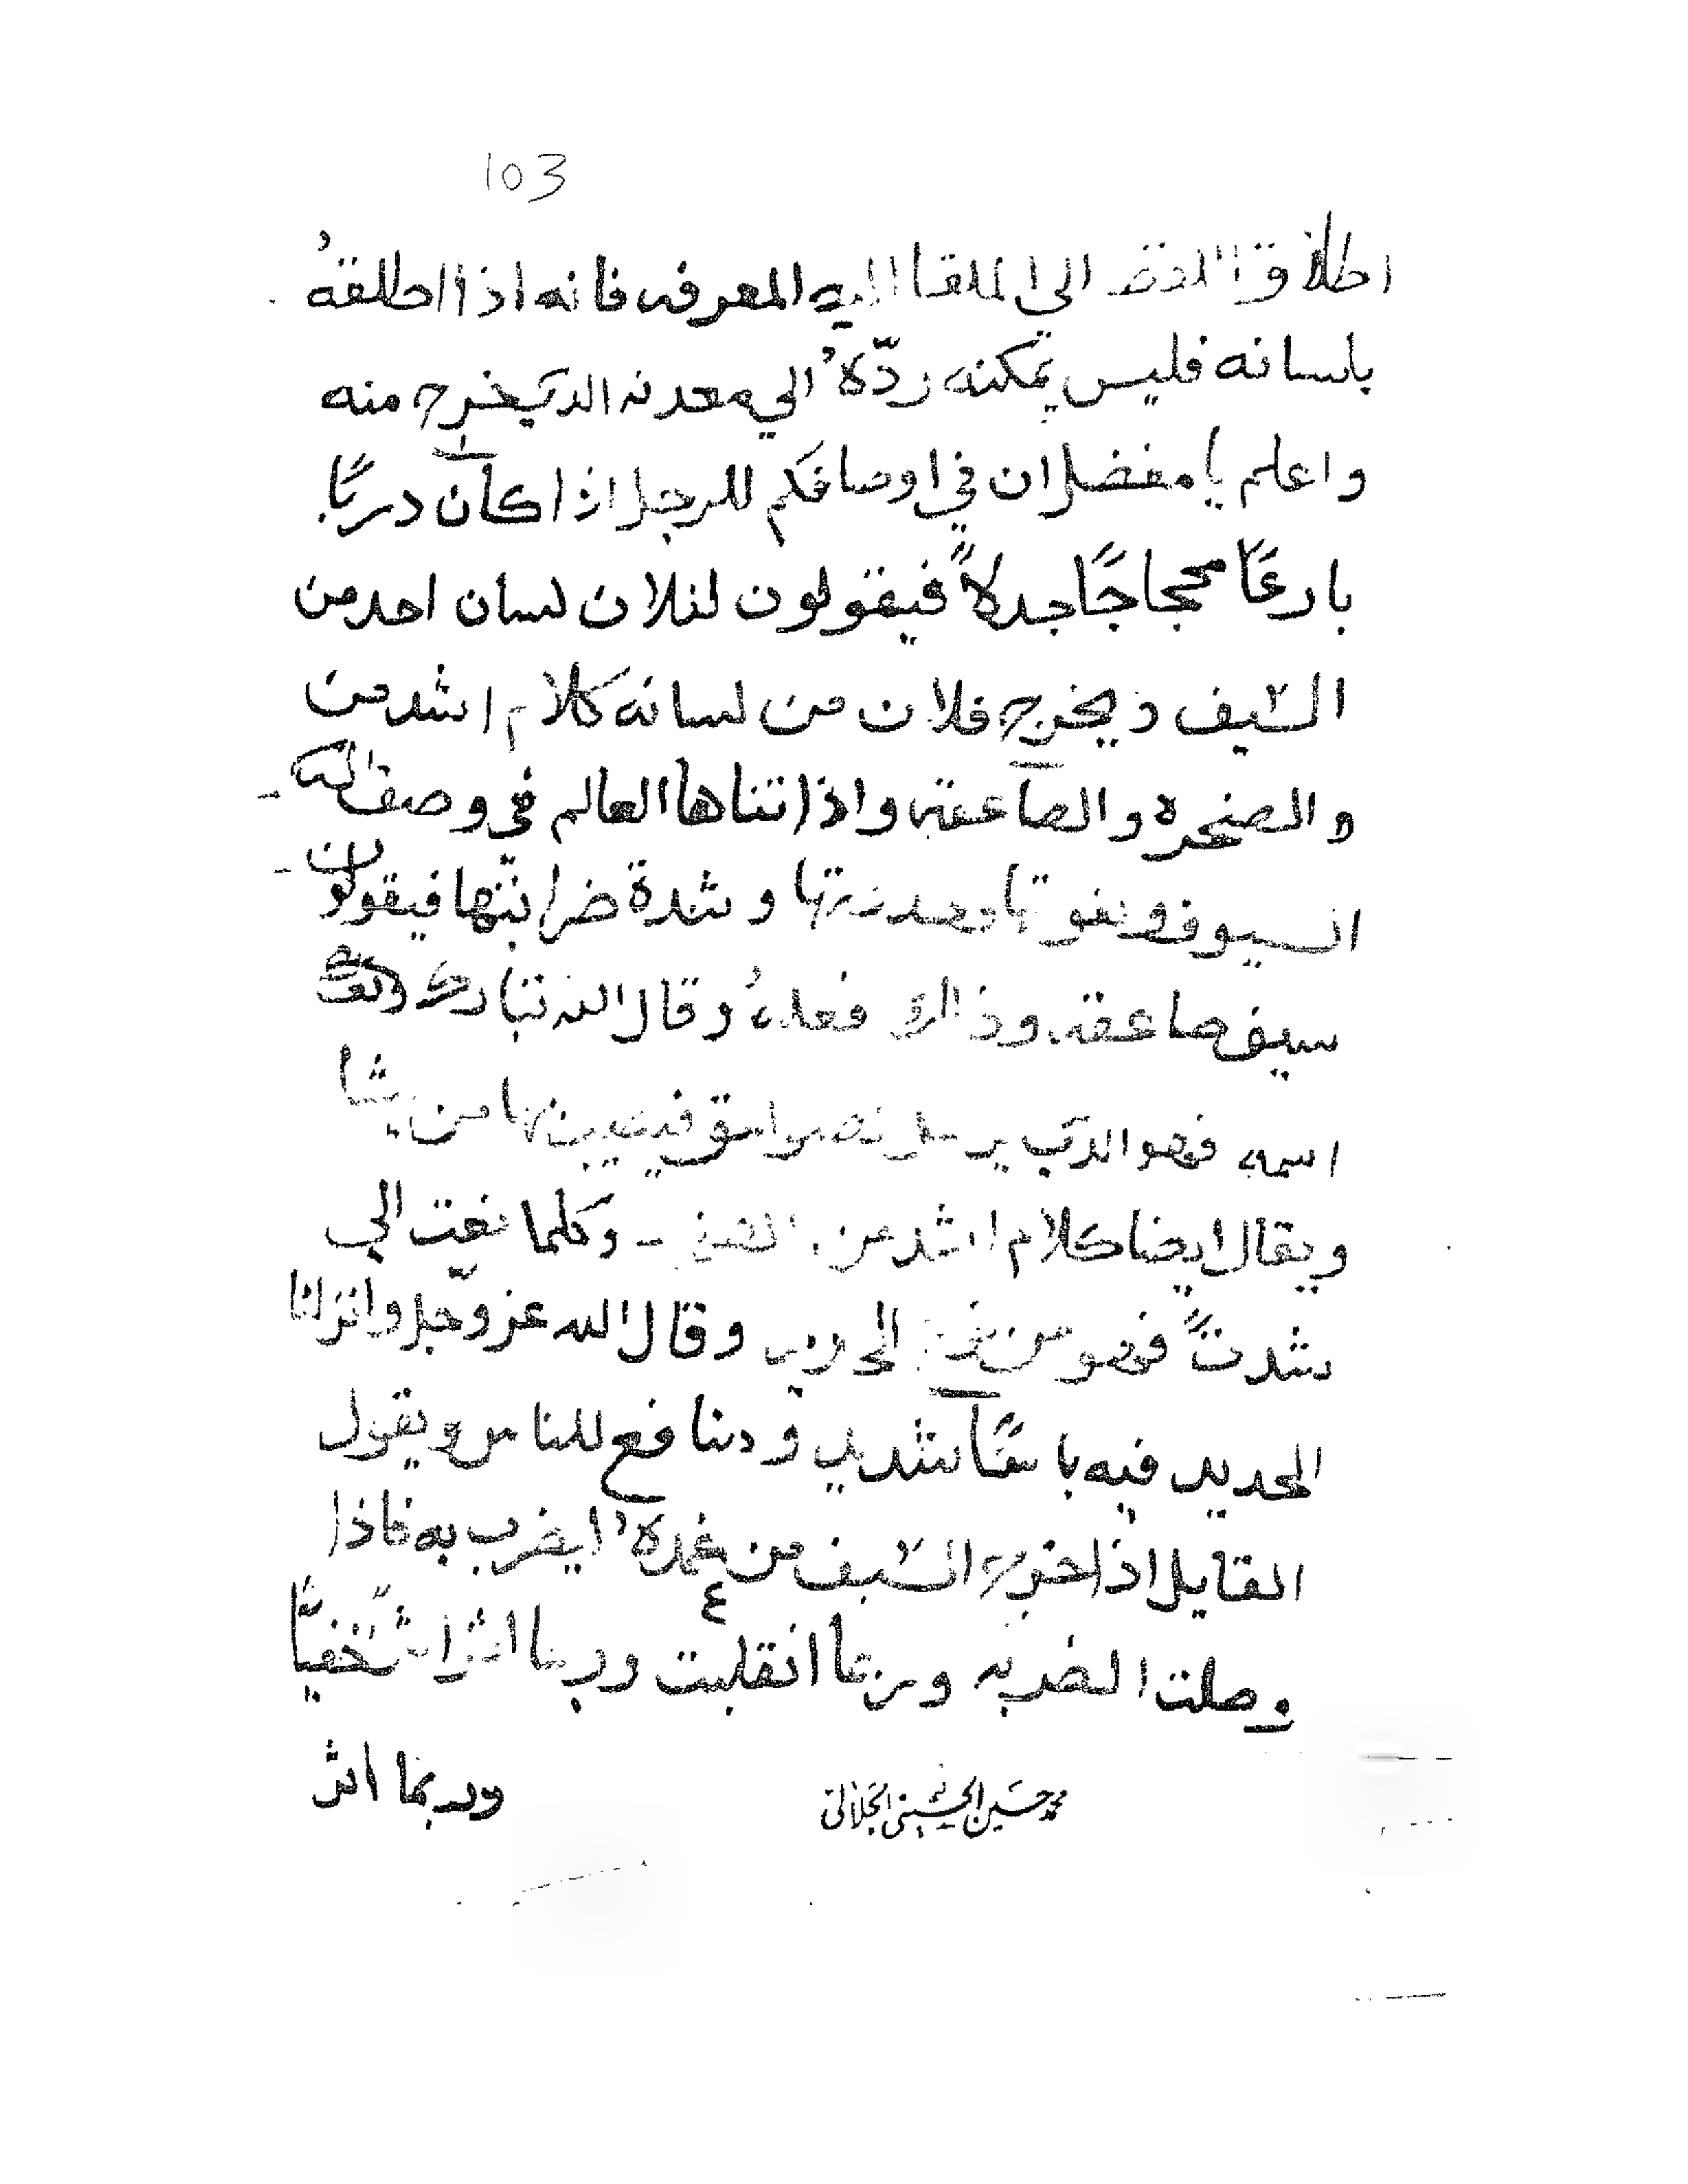 103
اطلاق اللفظ الى الملقا اليه المعرفه فانه اذا اطلقهُ
بلسانه فليس يمكنه ردّهُ الي معدنه الدي يخرج منه
واعلم يا مفضل ان في اوصافكم للرجل اذا كان دربًا
بارعًا محجاجًا جدلاً فيقولون لفلان لسان احد من
السيف ويخرج فلان من لسانه كلام اشد من
والصخره والصاعقه واذا تناها العالم في وصف
السيوف وشدة ضرابتها فيقولون
سيف صاعقه وذالك فعلهُ وقال الله تبارك وتعالى
اسمه فهو الدي يرسل فيصيب بها من يشا
ويقال ايضا كلام اشد من وكلما نعت الي
شدتً فهو من الحديد وقال الله عز وجل وانزلنا
الحديد فيه باسًا شديد ومنافع للناس ويقول
القايل اذا اخرج السيف من غمدهُ ليضرب به فاذا
وصلت الضربه وربما انقلبت وربما اثر خفيًا
وربما اثر
محمد حسين الحسيني الجلالي